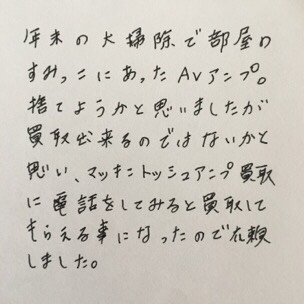 年末の大掃除で部屋の
すみっこにあったAVアンプ。
捨てようかと思いましたが
買取出来るのではないかと
思い、マッキントッシュアンプ買取
に電話をしてみると買取して
もらえる事になったので依頼
しました。